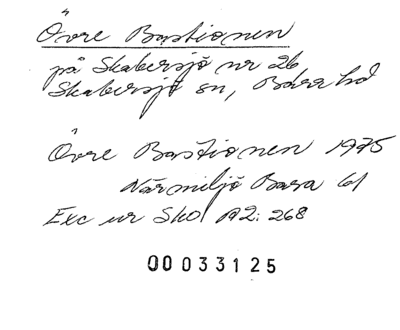 Övre Bastionen
på Skabersjö nr 26
Skabersjö sn, Bara hd
Övre Bastionen 1975
Närmiljö Bara 61
Exc ur Sko A2: 268
00033125